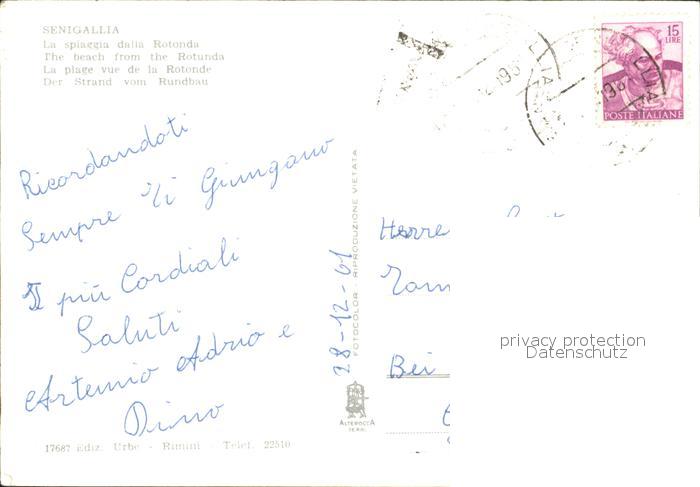 SENIGALLIA
La spiaggia dalla Rotonda
The beach from the Rotunda
La plage vue de la Rotonde
Der Strand vom Rundbau
15
LIRE
POSTE ITALIANE
Ricordandoti
Sempre Ti Giungano
I più Cordiali
Saluti
Artemio Adrio e
Dino
28-12-61
FOTOCOLOR - RIPRODUZIONE VIETATA
Herre
Bei
privacy protection
Datenschutz
ALTEROCCA
TERNI
17687 Ediz. Urbe - Rimini - Telef. 22510